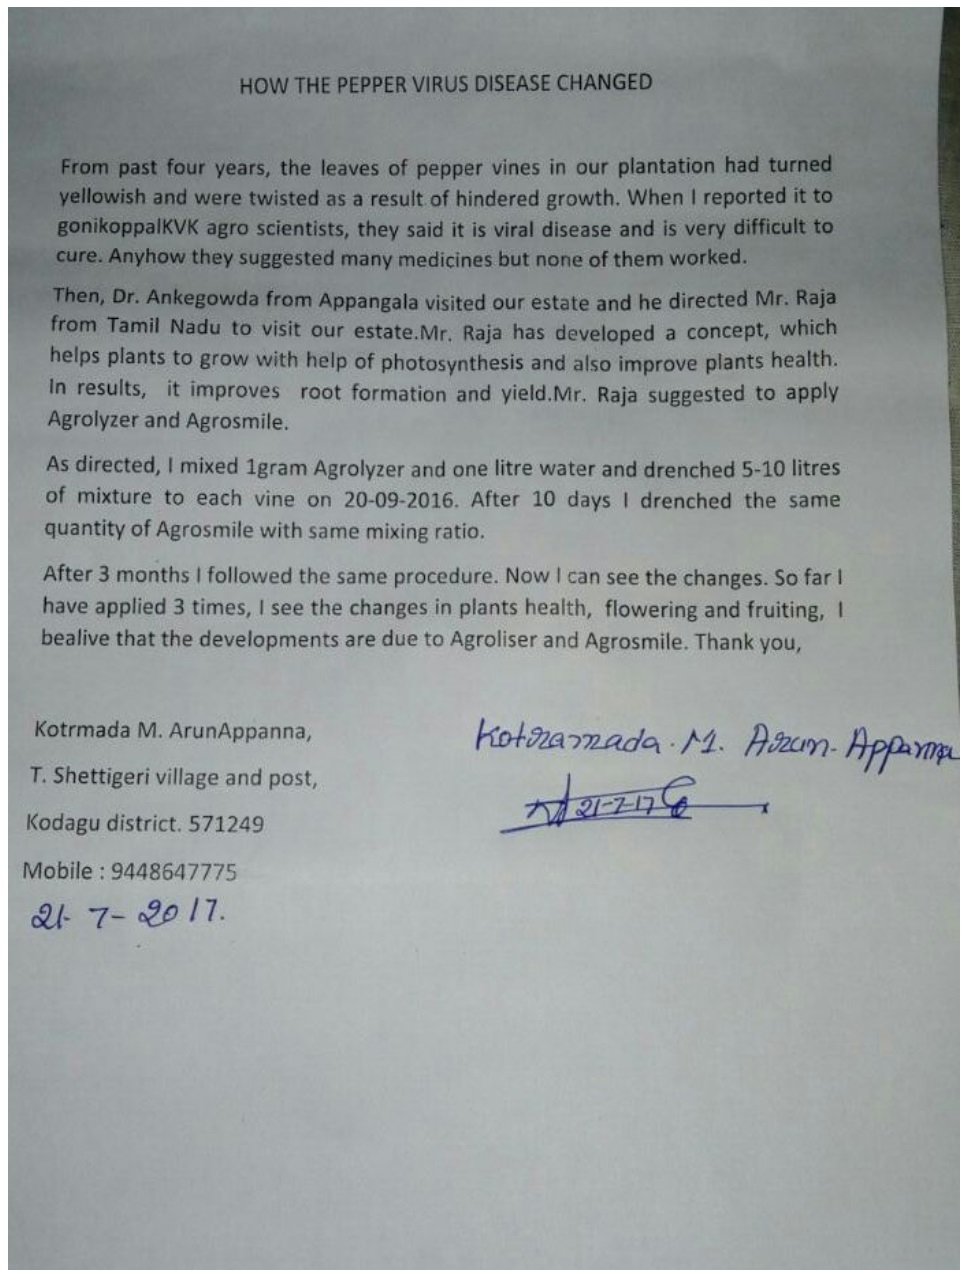 HOW THE PEPPER VIRUS DISEASE CHANGED
From past four years, the leaves of pepper vines in our plantation had turned
yellowish and were twisted as a result of hindered growth. When I reported it to
gonikoppalKVK agro scientists, they said it is viral disease and is very difficult to
cure. Anyhow they suggested many medicines but none of them worked.
Then, Dr. Ankegowda from Appangala visited our estate and he directed Mr. Raja
from Tamil Nadu to visit our estate.Mr. Raja has developed a concept, which
helps plants to grow with help of photosynthesis and also improve plants health.
In results, it improves root formation and yield.Mr. Raja suggested to apply
Agrolyzer and Agrosmile.
As directed, I mixed 1gram Agrolyzer and one litre water and drenched 5-10 litres
of mixture to each vine on 20-09-2016. After 10 days I drenched the same
quantity of Agrosmile with same mixing ratio.
After 3 months I followed the same procedure. Now I can see the changes. So far I
have applied 3 times, I see the changes in plants health, flowering and fruiting, I
bealive that the developments are due to Agroliser and Agrosmile. Thank you,
Kotrmada M. ArunAppanna,
T. Shettigeri village and post,
Kodagu district. 571249
Mobile : 9448647775
21-7-2017.
Kotramada. M. Arun. Appanna
21-7-17